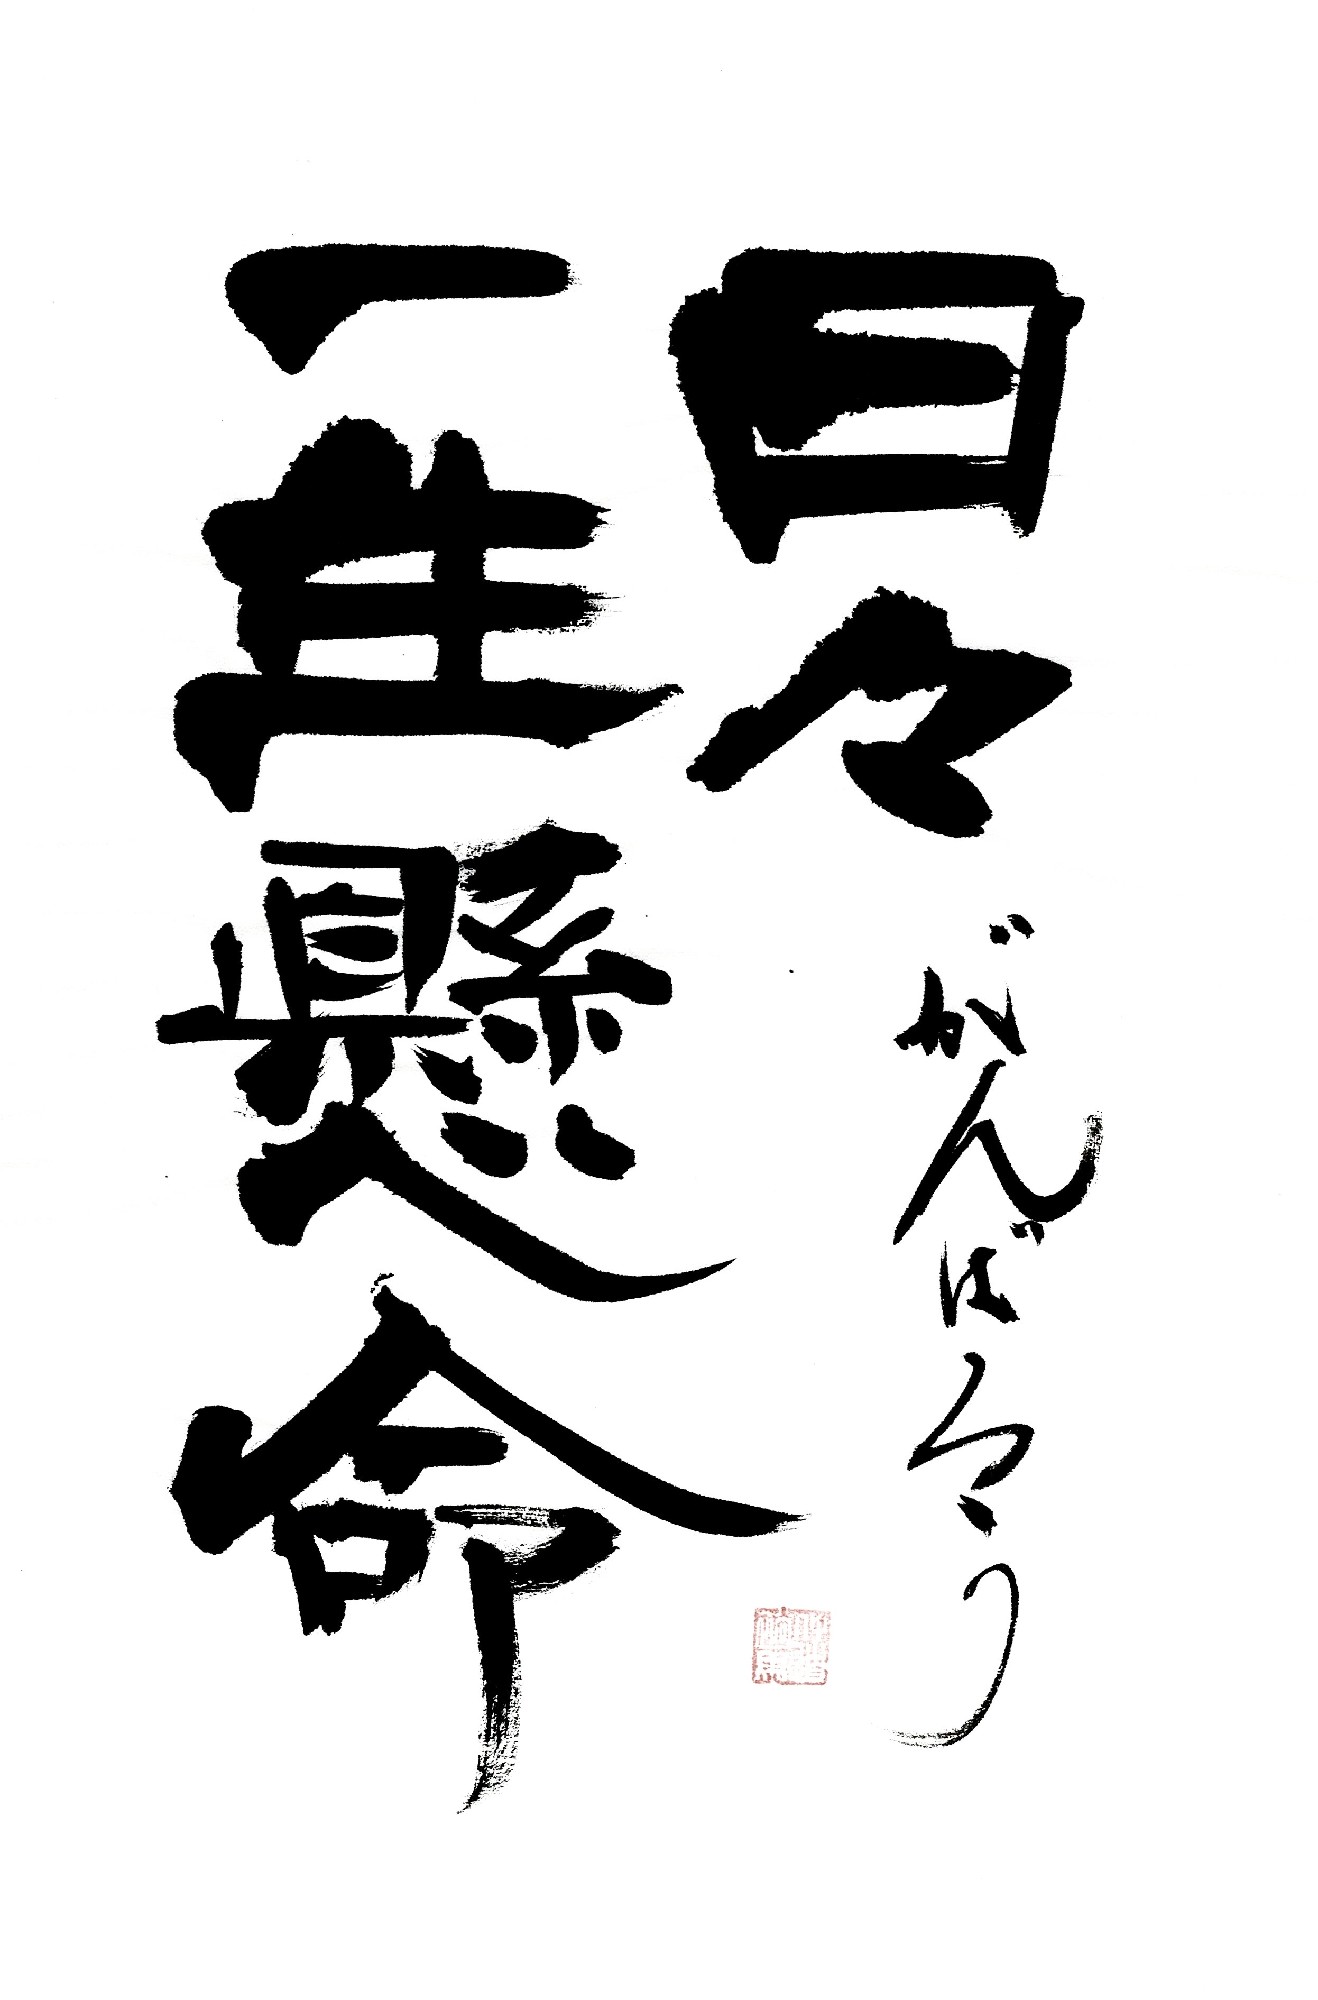 日々がんばろう
一生懸命